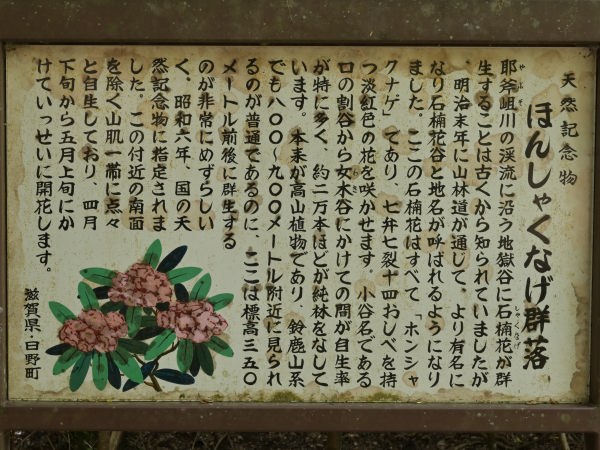 天然記念物
ほんしゃくなげ群落
耶斧岨川の渓流に沿う地獄谷に石楠花が群
やぶそ
しゃくなげ
生することは古くから知られていましたが
、明治末年に山林道が通じて、より有名に
なり石楠花谷と地名が呼ばれるようになり
ました。ここの石楠花はすべて「ホンシャ
クナゲ」であり、七弁七裂十四おしべを持
つ淡紅色の花を咲かせます。小谷名である
口の割谷から女木谷にかけての間が自生率
が特に多く、約二万本ほどが純林をなして
います。本来が高山植物であり、鈴鹿山系
でも八〇〇〜九〇〇メートル附近に見られ
るのが普通であるのに、ここは標高三五〇
メートル前後に群生する
のが非常にめずらしい
く、昭和六年、国の天
然記念物に指定されま
した。この付近の南面
を除く山肌一帯に点々
と自生しており、四月
下旬から五月上旬にか
けていっせいに開花します。
滋賀県・日野町